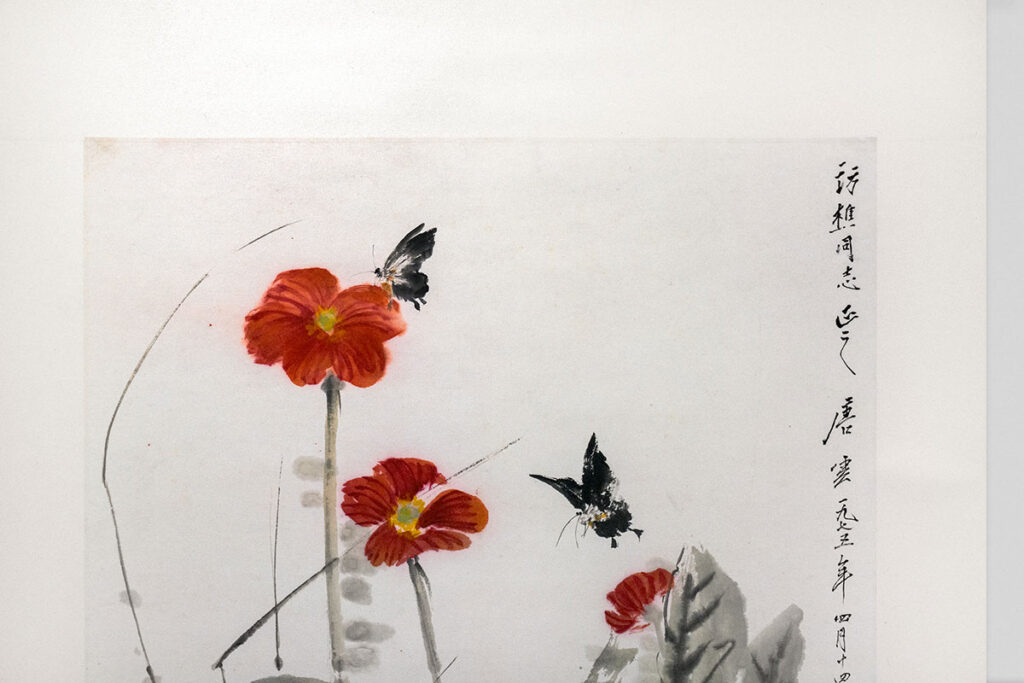 樵同志正之 唐雲一九七五年四月十四